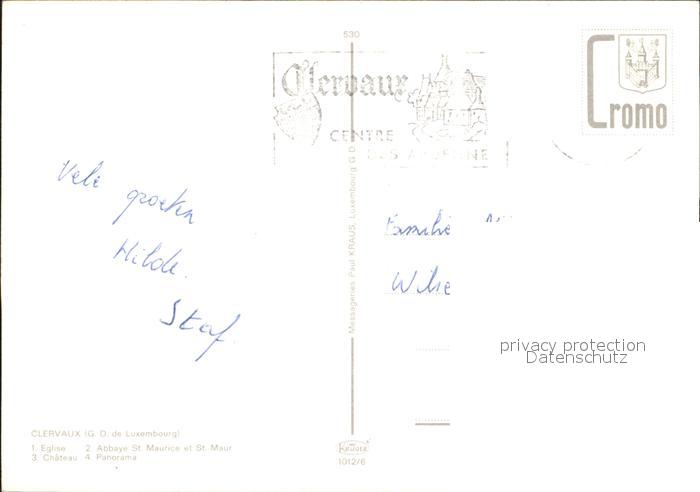 530
Clervaux
CENTRE
DES ARDENNE
Cromo
Vele
groeten
Hilde.
Staf.
Familie
Messageries Paul KRAUS, Luxembourg G.D.
privacy protection
Datenschutz
CLERVAUX (G. D. de Luxembourg)
1. Eglise 2. Abbaye St. Maurice et St. Maur
3. Château 4. Panorama
KRÜGER
1012/6